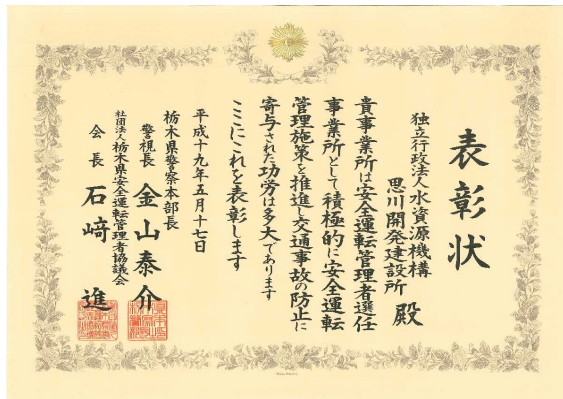 表彰状
独立行政法人水資源機構
思川開発建設所 殿
貴事業所は安全運転管理者選任
事業所として積極的に安全運転
管理施策を推進し交通事故の防止に
寄与された功労は多大であります
ここにこれを表彰します
平成十九年五月十七日
栃木県警察本部長
警視長 金山泰介
社団法人栃木県安全運転管理者協議会
会長 石﨑進